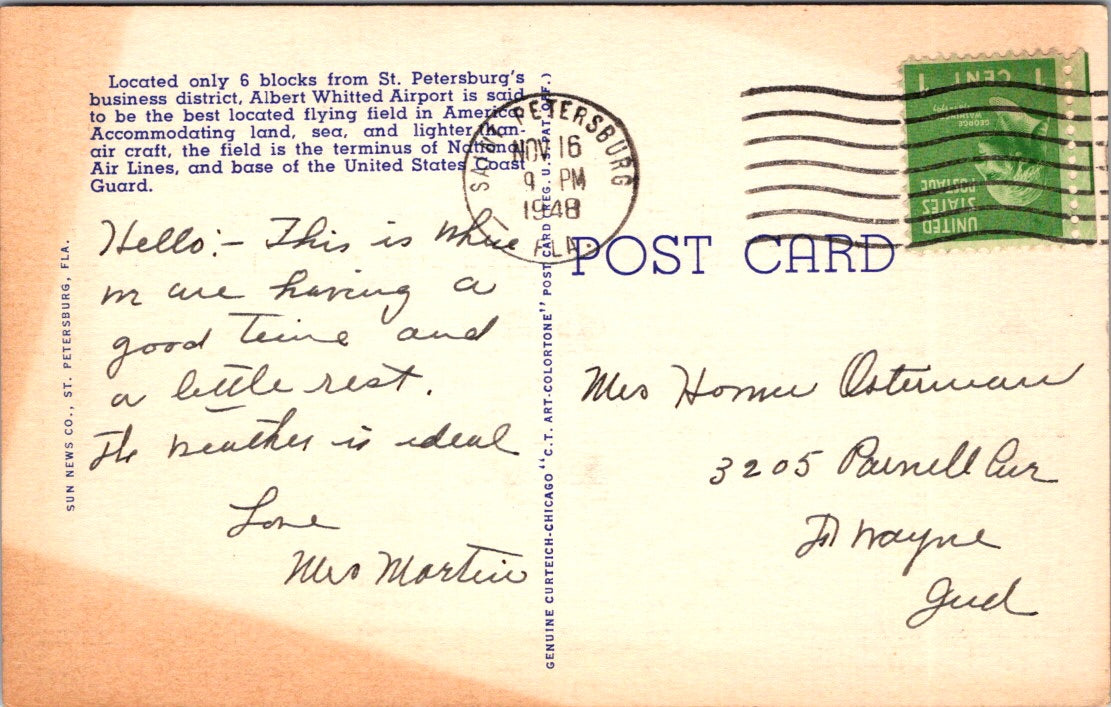 Located only 6 blocks from St. Petersburg's
business district, Albert Whitted Airport is said
to be the best located flying field in America.
Accommodating land, sea, and lighter-than-
air craft, the field is the terminus of National
Air Lines, and base of the United States Coast
Guard.
SUN NEWS CO., ST. PETERSBURG, FLA.
Hello:- This is where
we are having a
good time and
a little rest.
The weather is ideal
Love
Mrs Martin
GENUINE CURTEICH-CHICAGO "C.T. ART-COLORTONE" POST CARD (REG. U.S. PAT. OFF.)
SAINT PETERSBURG
NOV 16
9 PM
1948
FLA.
POST CARD
1 CENT 1
GEORGE
WASHINGTON
UNITED
STATES
POSTAGE
Mrs Homer Osterman
3205 Parnell Ave
Ft Wayne
Ind